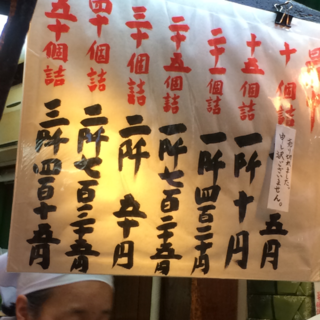 十個詰 五円
十五個詰 一阡十円
二十一個詰 一阡四百二十円
二十五個詰 一阡七百二十五円
三十個詰 二阡五十円
四十個詰 二阡七百二十五円
五十個詰 三阡四百十五円
売り切れました。
申し訳ございません。